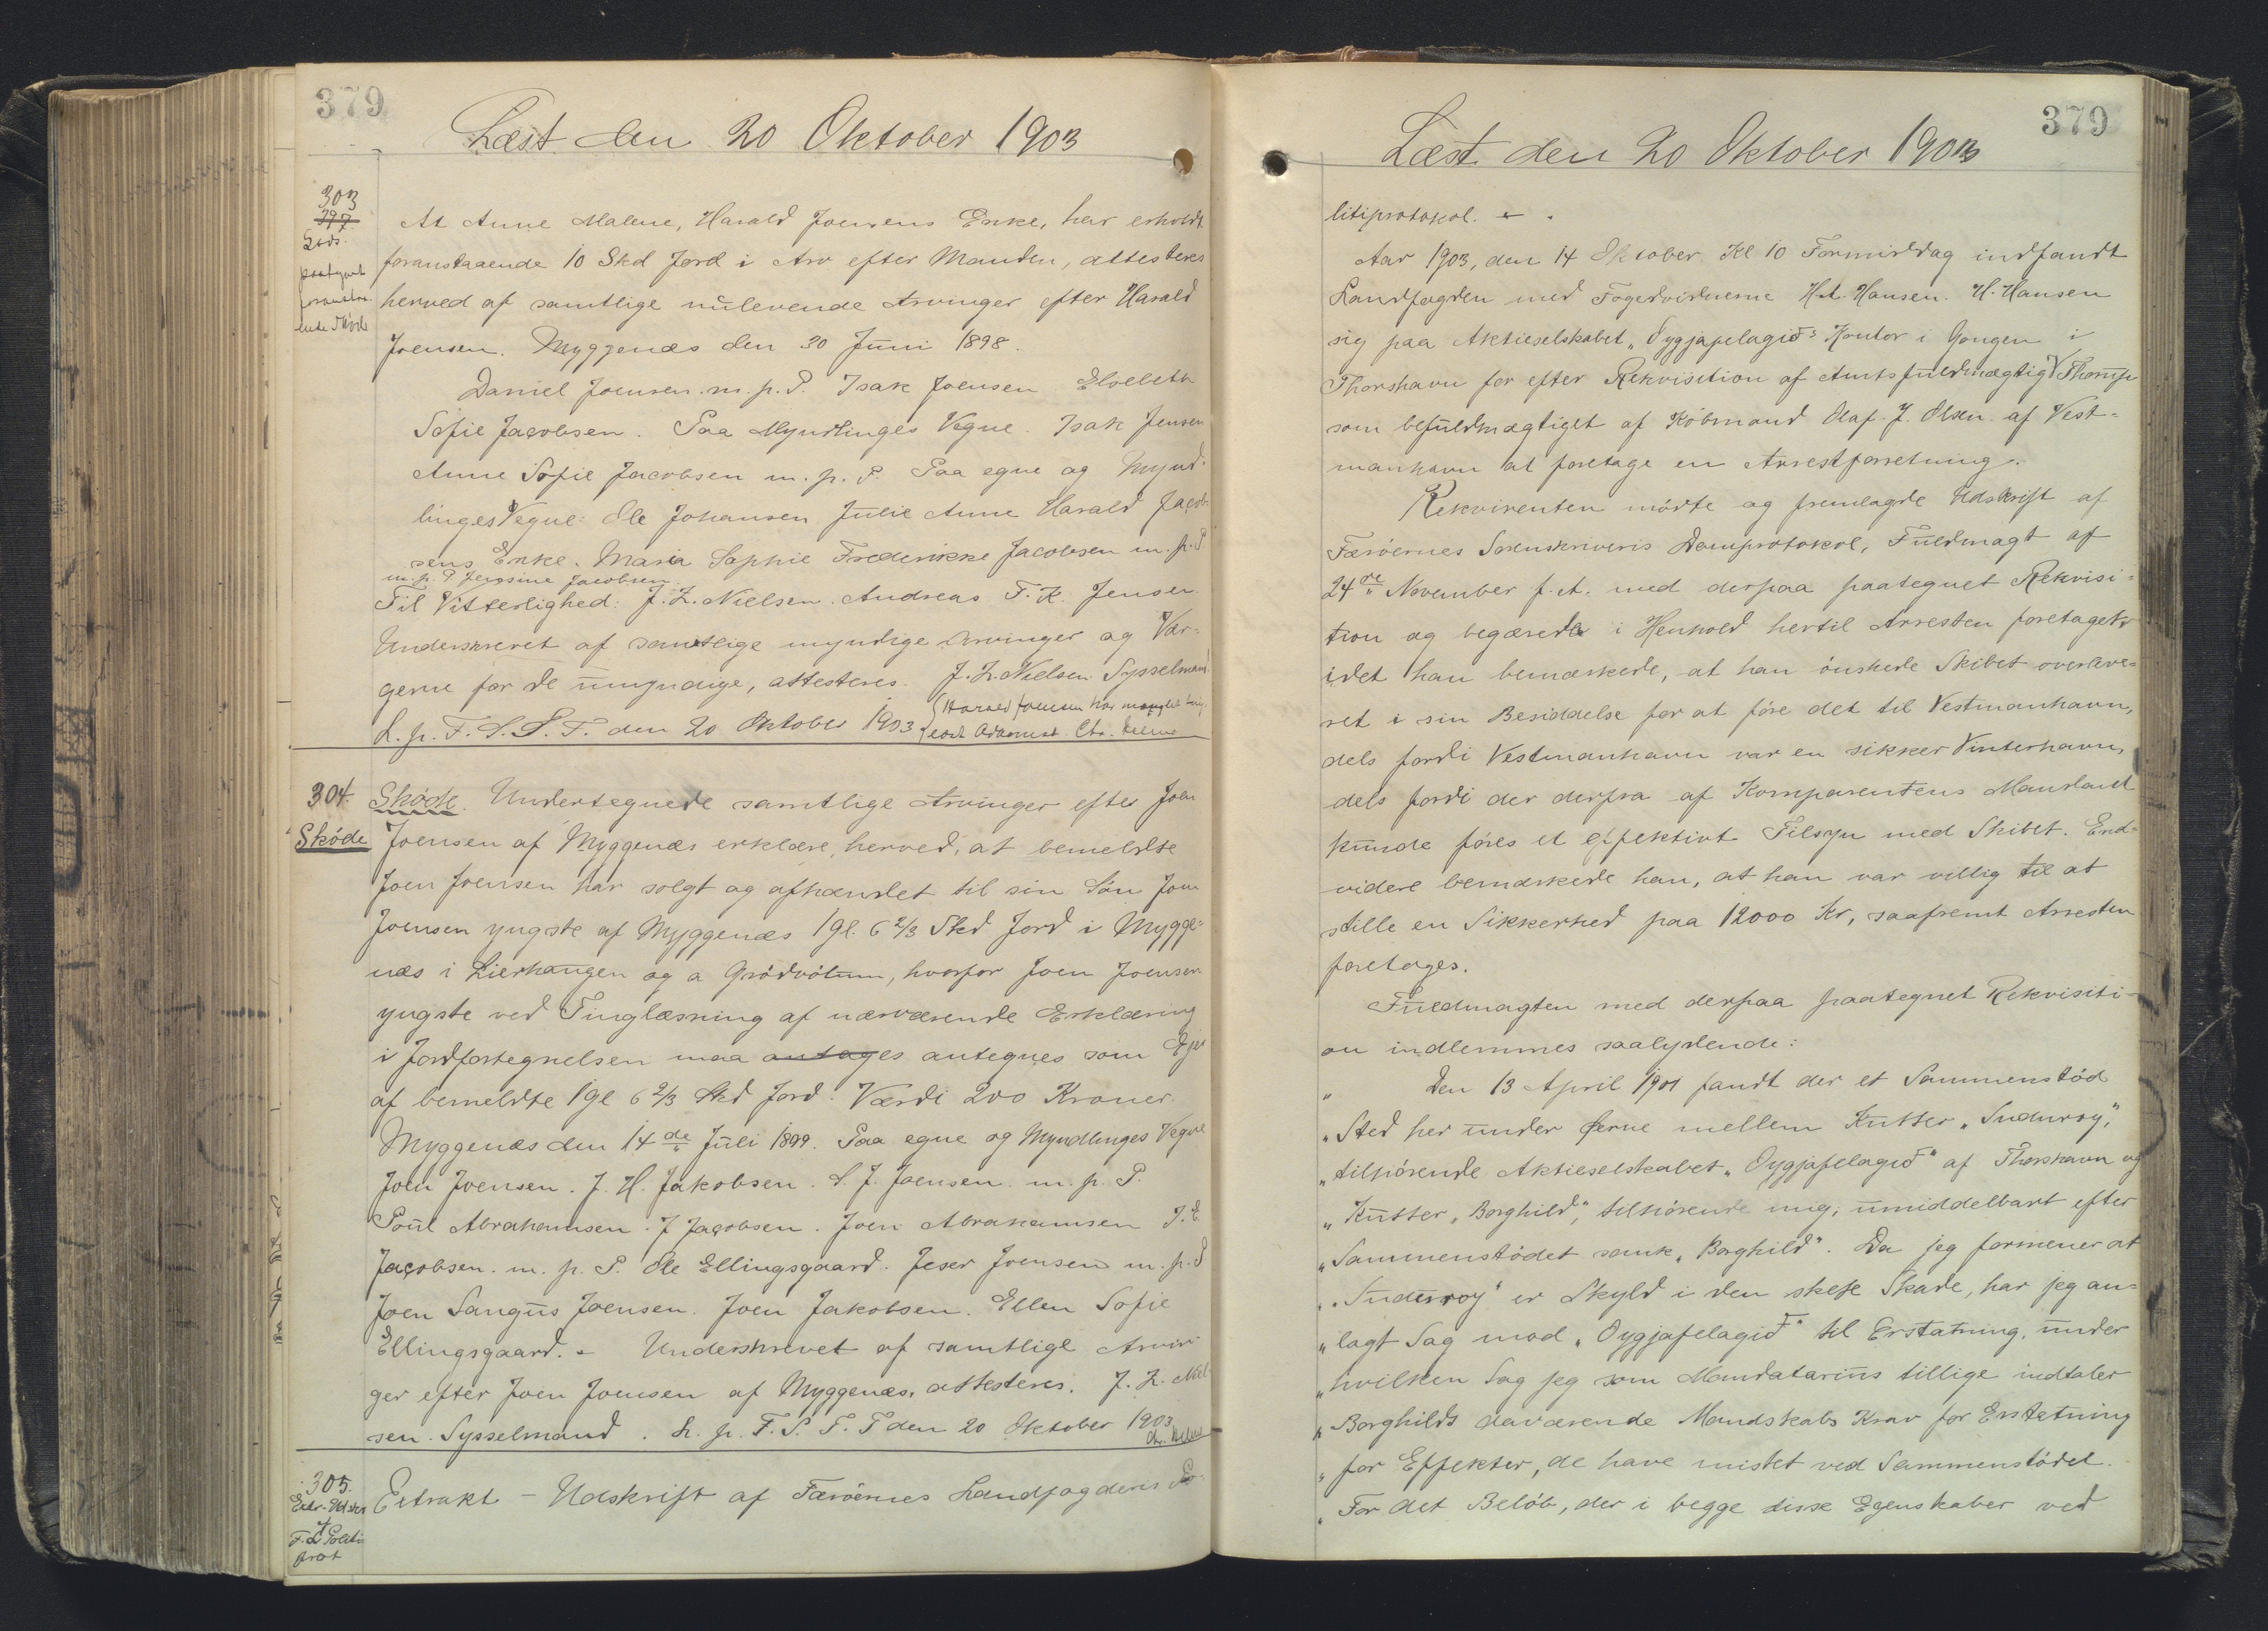 379
Læst den 20 Oktober 1903
303
397
paategnet
foranstaa-
ende Skøde
At Anne Malene, Harald Joensens Enke, har erholdt
foranstaaende 10 Skd Jord i Arv efter Manden, attesteres
herved af samtlige nulevende Arvinger efter Harald
Joensen. Myggenæs den 30 Juni 1898.
Daniel Joensen m. p. P. Isak Joensen Elsebeth
Sofie Jacobsen. Paa Myndlinges Vegne. Isak Jensen
Anne Sofie Jacobsen m. p. P. Paa egne og Mynd-
linges Vegne: Ole Johansen Julie Anne Harald Jacob-
sens Enke. Maria Sophie Frederikke Jacobsen m. p. P
m. p. P Jensine Jacobsen.
Til Vitterlighed: J. Z. Nielsen. Andreas F. K. Jensen.
Underskrevet af samtlige myndige Arvinger og Vær-
gerne for de umyndige, attesteres. J. Z. Nielsen Sysselmand.
L. p. F. S. S. T. den 20 Oktober 1903 {Harald Joensen har manglet ting-
læst Adkomst. Chr.
304.
Skøde
Skøde. Undertegnede samtlige Arvinger efter Joen
Joensen af Myggenæs erklære herved, at bemeldte
Joen Joensen har solgt og afhændet til sin Søn Joen
Joensen yngste af Myggenæs 1 gl. 6 2/3 Skd Jord i Mygge-
næs i Lierhaugen og a Grødvøtum, hvorfor Joen Joensen
yngste ved Tinglæsning af nærværende Erklæring
i Jordfortegnelsen maa antages antegnes som Ejer
af bemeldte 1 gl 6 2/3 Skd Jord. Værdi 200 Kroner.
Myggenæs den 14de Juli 1899. Paa egne og Myndlinges Vegne
Joen Joensen. J. H. Jakobsen. S. J. Joensen. m. p. P.
Poul Abrahamsen. J Jacobsen. Joen Abrahamsen J. E.
Jacobsen. m. p. P. Ole Ellingsgaard. Jeser Joensen m. p. P
Joen Sangus Joensen. Joen Jakobsen. Ellen Sofie
Ellingsgaard. - Underskrevet af samtlige Arvin-
ger efter Joen Joensen af Myggenæs, attesteres. J. Z. Niel-
sen. Sysselmand. L. p. F. S. T. T den 20 Oktober 1903
305.
Extr.-Udskr
af
F. L Politi
prot
Extrakt - Udskrift af Færöernes Landfogderis Po-
379
Læst den 20 Oktober 1903
litiprotokol. -
Aar 1903, den 14 Oktober Kl 10 Formiddag indfandt
Landfogden med Fogedvidnerne H. A. Hansen. H. Hansen
sig paa Aktieselskabet „Oygjafelagið"s Kontor i Gongen i
Thorshavn for efter Rekvisition af Amtsfuldmægtig V Thomp
som befuldmægtiget af Købmand Olaf J. Olsen af Vest-
manhavn at foretage en Arrestforretning.
Rekvirenten mödte og fremlagde Udskrift af
Færöernes Sorenskriveris Domprotokol, Fuldmagt af
24de November f. A. med derpaa paategnet Rekvisi-
tion og begærede i Henhold hertil Arresten foretaget,
idet han bemærkede, at han önskede Skibet overleve-
ret i sin Besiddelse for at före det til Vestmanhavn,
dels fordi Vestmanhavn var en sikker Vinterhavn,
dels fordi der derfra af Komparentens Mandant
kunde föres et effektivt Tilsyn med Skibet. End-
videre bemærkede han, at han var villig til at
stille en Sikkerhed paa 12000 Kr, saafremt Arresten
foretages.
Fuldmagten med derpaa paategnet Rekvisiti-
on indlemmes saalydende:
„ Den 13 April 1901 fandt der et Sammenstöd
„Sted her under Öerne mellem Kutter „Suduroy",
„tilhörende Aktieselskabet „Oygjafelagið" af Thorshavn og
„Kutter „Borghild", tilhörende mig; umiddelbart efter
„Sammenstödet sank „Borghild". Da jeg formener at
„„Suduroy" er Skyld i den skete Skade, har jeg an-
„lagt Sag mod „Oygjafelagið" til Erstatning, under
„hvilken Sag jeg som Mandatarius tillige indtaler
„Borghilds daværende Mandskabs Krav for Erstatning
„for Effekter, de have mistet ved Sammenstödet.
„For det Belöb, der i begge disse Egenskaber ved